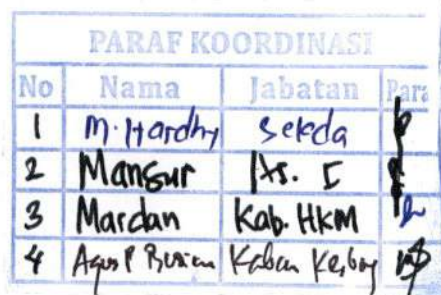 PARAF KOORDINASI
No Nama Jabatan Para
1 M. Hardhy Sekda
2 Mansur As. I
3 Mardan Kab. HKM
4 Agus P Kaban Kesbang